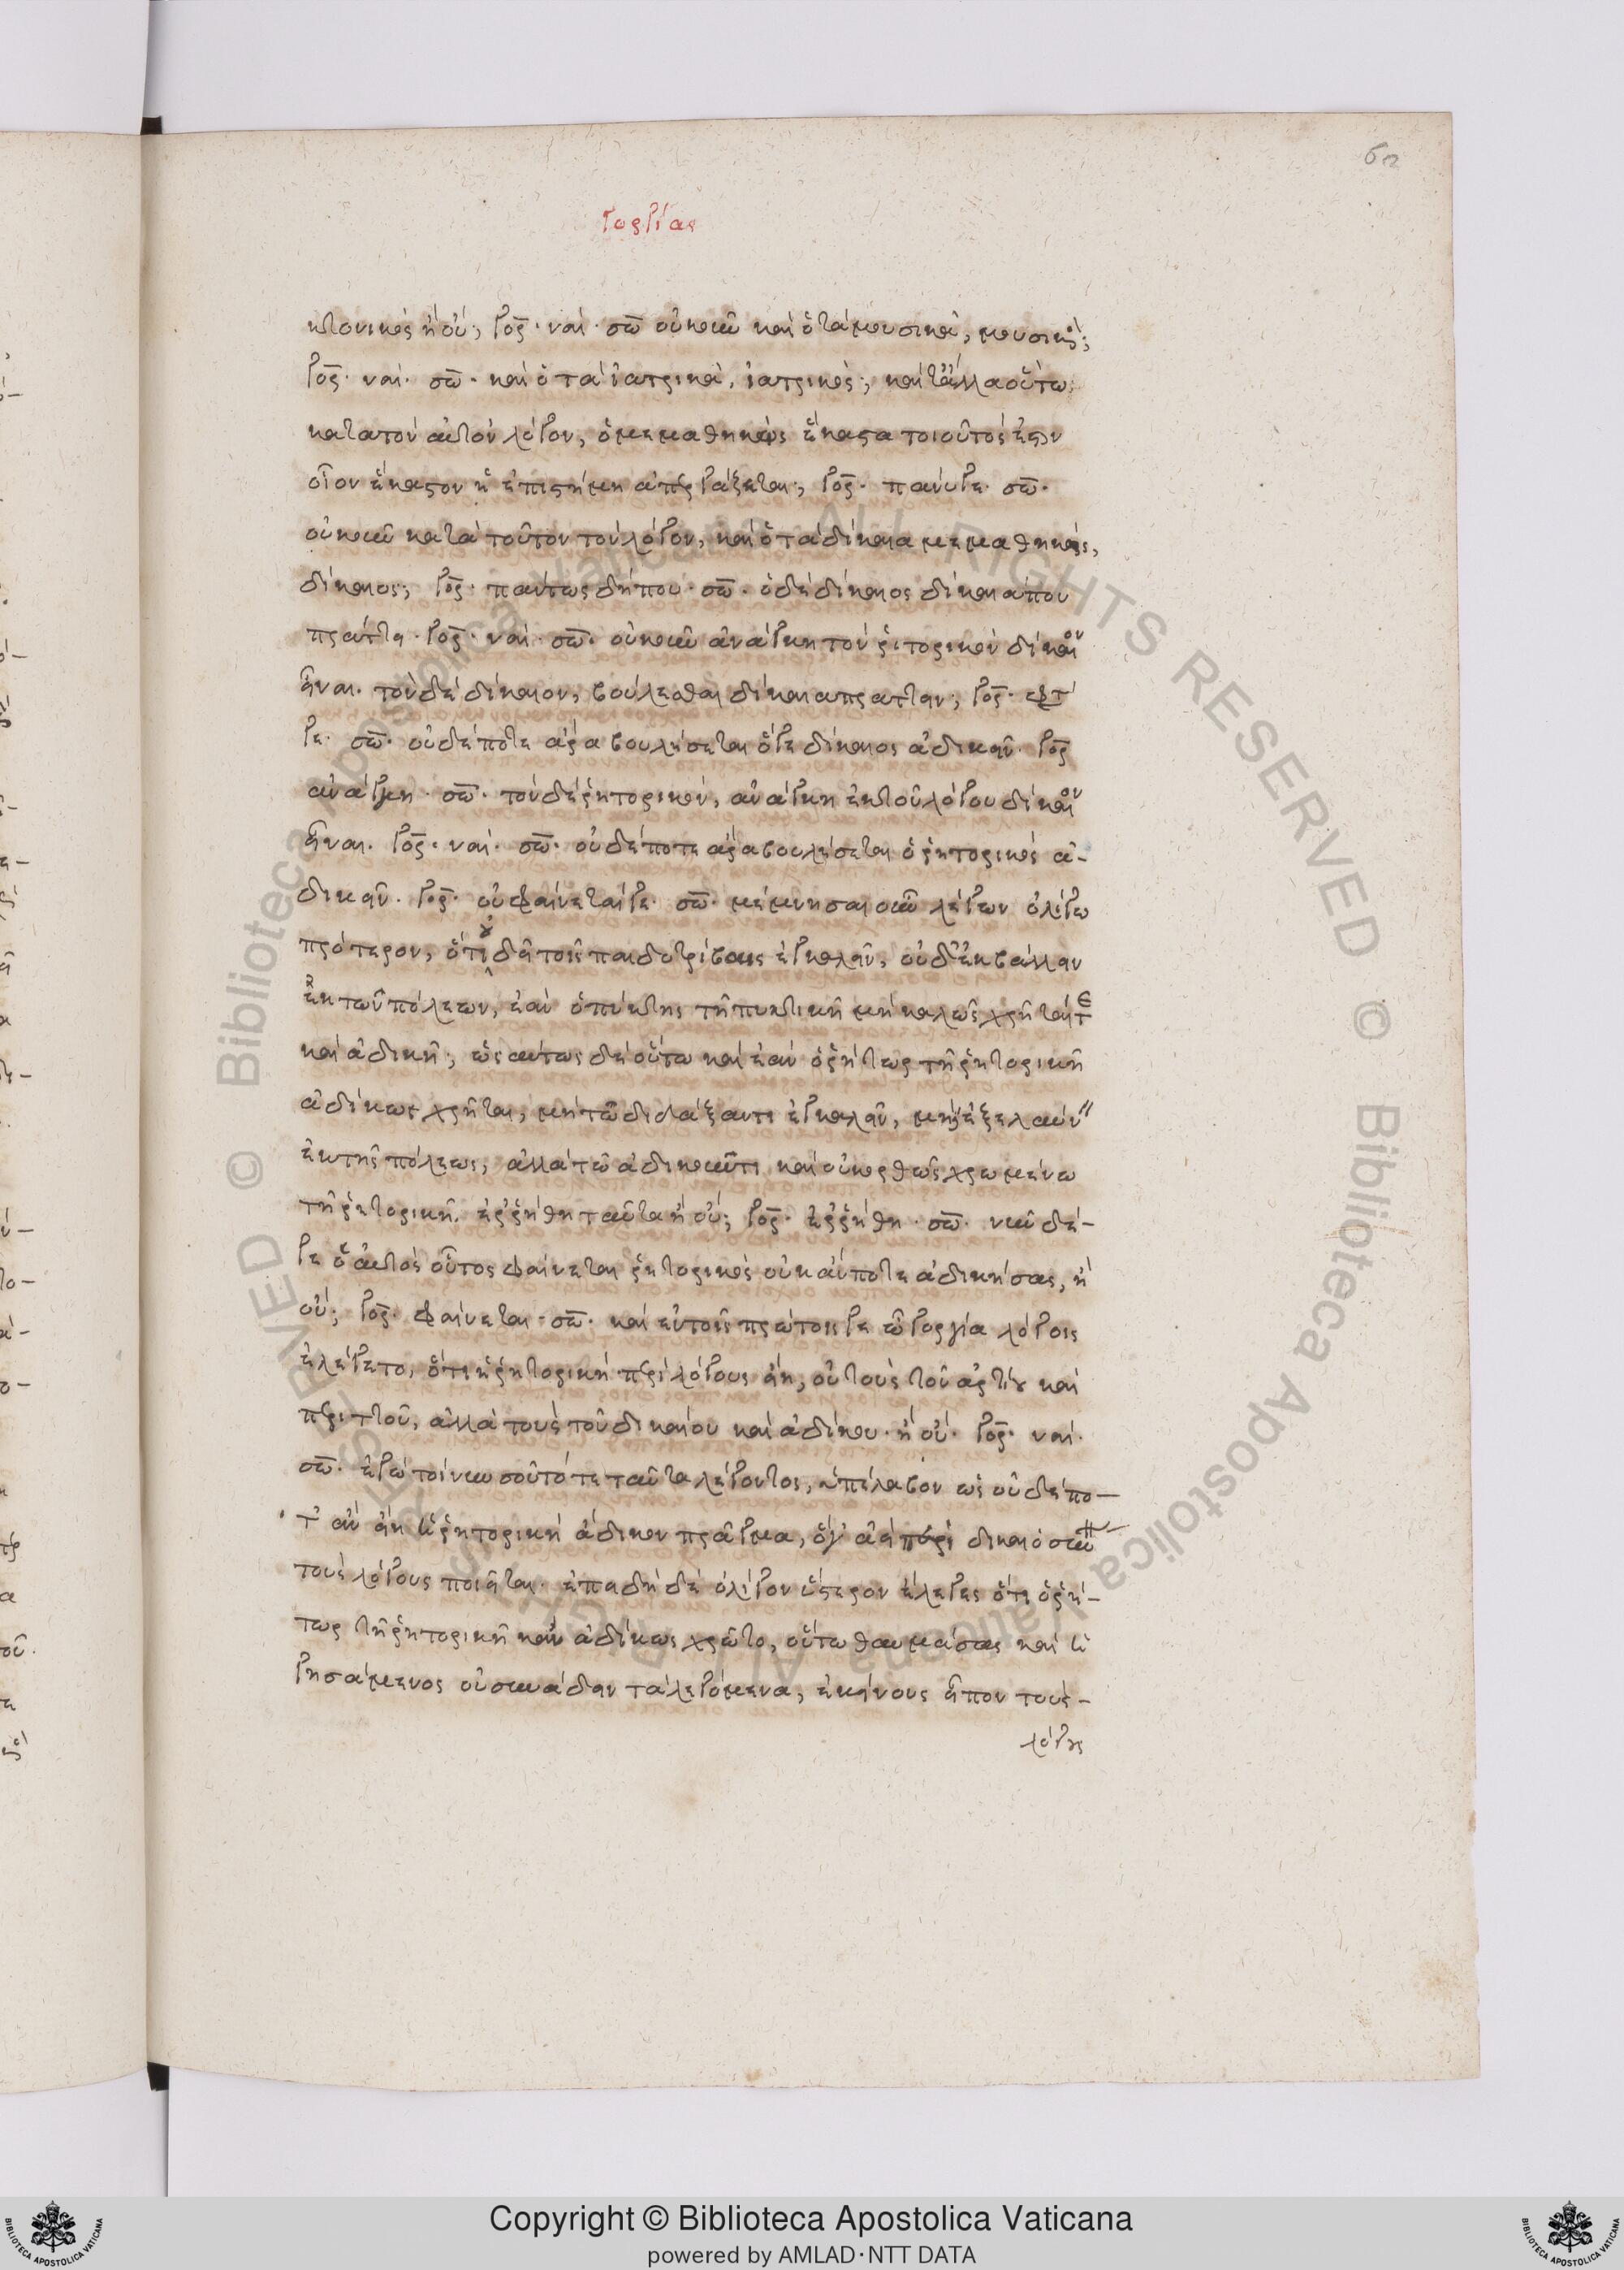 60
Γοργίας
κτονικὸς ἢ οὔ; γορ. ναί. σω. οὐκοῦν καὶ ὁ τὰ μουσικὰ, μουσικός;
γορ. ναί. σω. καὶ ὁ τὰ ἰατρικὰ, ἰατρικὸς; καὶ τἆλλα οὕτω
κατὰ τὸν αὐτὸν λόγον, ὁ μεμαθηκὼς ἕκαστα τοιοῦτός ἐστιν
οἷον ἕκαστον ἡ ἐπιστήμη ἀπεργάζεται; γορ. πάνυ γε. σω.
οὐκοῦν κατὰ τοῦτον τὸν λόγον, καὶ ὁ τὰ δίκαια μεμαθηκὼς,
δίκαιος; γορ. πάντως δήπου. σω. ὁ δὲ δίκαιος δίκαιά που
πράττει. γορ. ναί. σω. οὐκοῦν ἀνάγκη τὸν ῥιτορικὸν δίκαιον
εἶναι. τὸν δὲ δίκαιον, βούλεσθαι δίκαια πράττειν; γορ.
γε. σω. οὐδέποτε ἄρα βουλήσεται ὅγε δίκαιος ἀδικεῖν. γορ
ἀνάγκη. σω. τὸν δὲ ῥητορικὸν, ἀνάγκη ἐκ τοῦ λόγου δίκαιον
εἶναι. γορ. ναί. σω. οὐδέποτε ἄρα βουλήσεται ὁ ῥητορικὸς ἀ-
δικεῖν. γορ. οὐ φαίνεταί γε. σω. μέμνησαι οὖν λέγων ὀλίγω
πρότερον, ὅτι οὐ δεῖ τοῖς παιδοτρίβαις ἐγκαλεῖν, οὐδ' ἐκβάλλειν
ἐκ τῶν πόλεων, ἐὰν ὁ πύκτης τῆ πυκτικῆ μὴ καλῶς χρῆταί τε
καὶ ἀδικῆ; ὡσαύτως δὲ οὕτω καὶ ἐὰν ὁ ῥήτωρ τῆ ῥητορικῆ
ἀδίκως χρῆται, μὴ τῶ διδάξαντι ἐγκαλεῖν, μηδ' ἐξελαύν
ἐκ τῆς πόλεως, ἀλλὰ τῶ ἀδικοῦντι καὶ οὐκ ὀρθῶς χρωμένω
τῆ ῥητορικῆ. ἐρρήθη ταῦτα ἢ οὔ; γορ. ἐρρήθη. σω. νῦν δέ-
γε ὁ αὐτὸς οὗτος φαίνεται ῥητορικὸς οὐκ ἄν ποτε ἀδικήσας, ἢ
οὔ; γορ. φαίνεται. σω. καὶ ἐν τοῖς πρώτοις γε ὦ γοργία λόγοις
ἐλέγετο, ὅτι ἡ ῥητορικὴ περὶ λόγους εἴη, οὐ τοὺς τοῦ ἀρτίου καὶ
περιττοῦ, ἀλλὰ τοὺς τοῦ δικαίου καὶ ἀδίκου. ἢ οὔ. γορ. ναί.
σω. ἐγὼ τοίνυν σοῦ τότε ταῦτα λέγοντος, ὑπέλαβον ὡς οὐδέπο-
τ' ἂν εἴη ἡ ῥητορικὴ ἄδικον πρᾶγμα, ὅγ' ἀεὶ περὶ δικαιοσύν
τοὺς λόγους ποιεῖται. ἐπειδὴ δὲ ὀλίγον ὕστερον ἔλεγες ὅτι ὁ ῥή-
τωρ τῆ ῥητορικῆ κἂν ἀδίκως χρῶτο, οὕτω θαυμάσας καὶ ἡ
γησάμενος οὐ συνάδειν τὰ λεγόμενα, ἐκείνους εἶπον τοὺς-
λόγους